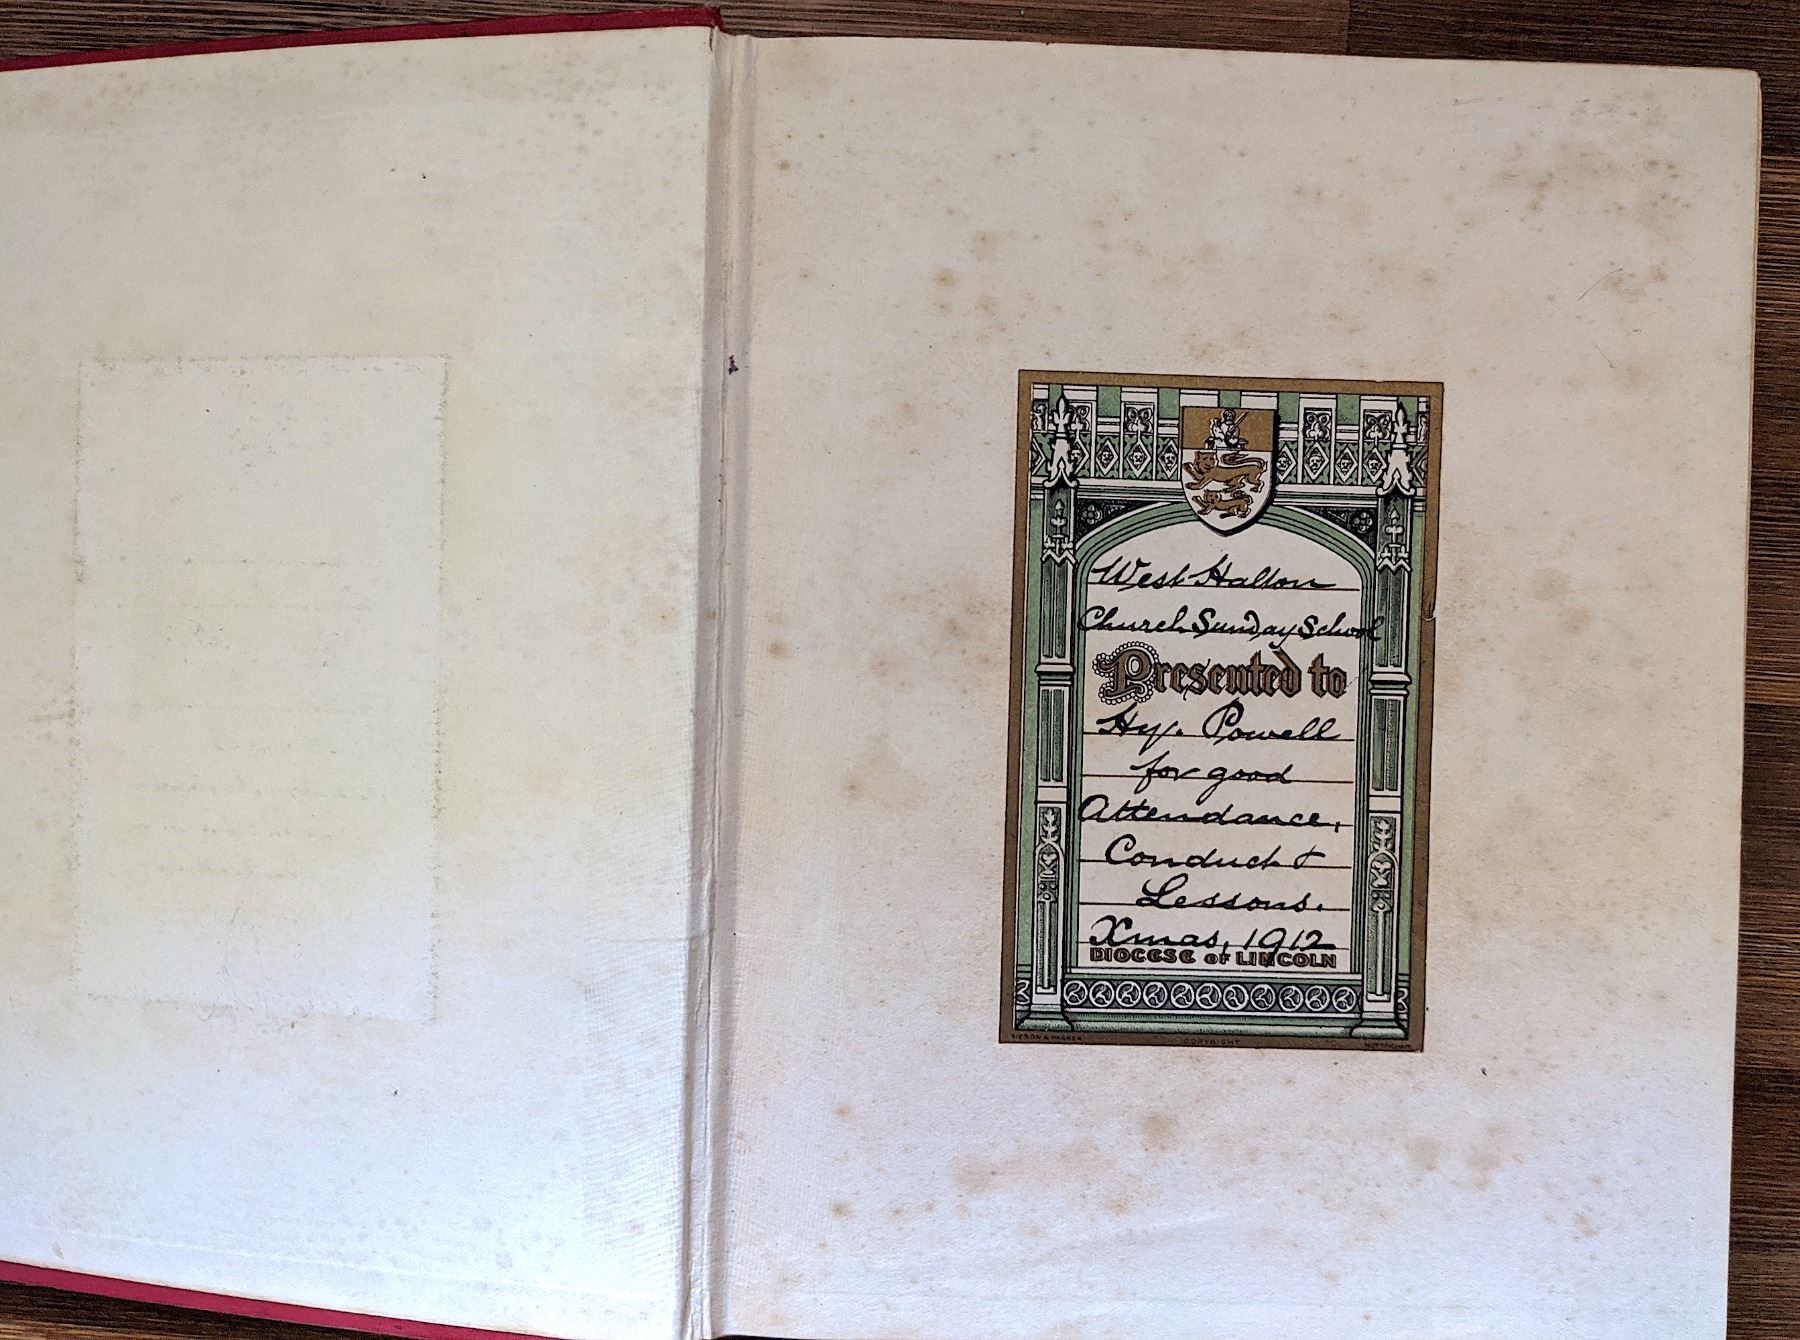 West Halton
Church Sunday School
Presented to
Hy. Powell
for good
Attendance,
Conduct &
Lessons.
Xmas, 1912
DIOCESE OF LINCOLN
COPYRIGHT